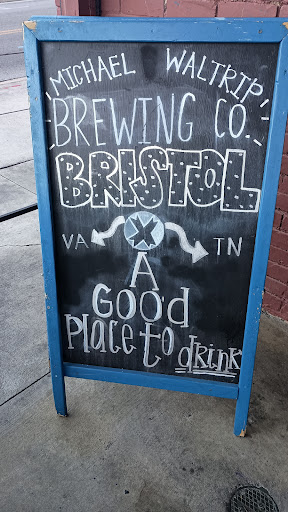 MICHAEL WALTRIP
BREWING CO.
BRISTOL
VA X TN
A
GOOD
PLACE to drink